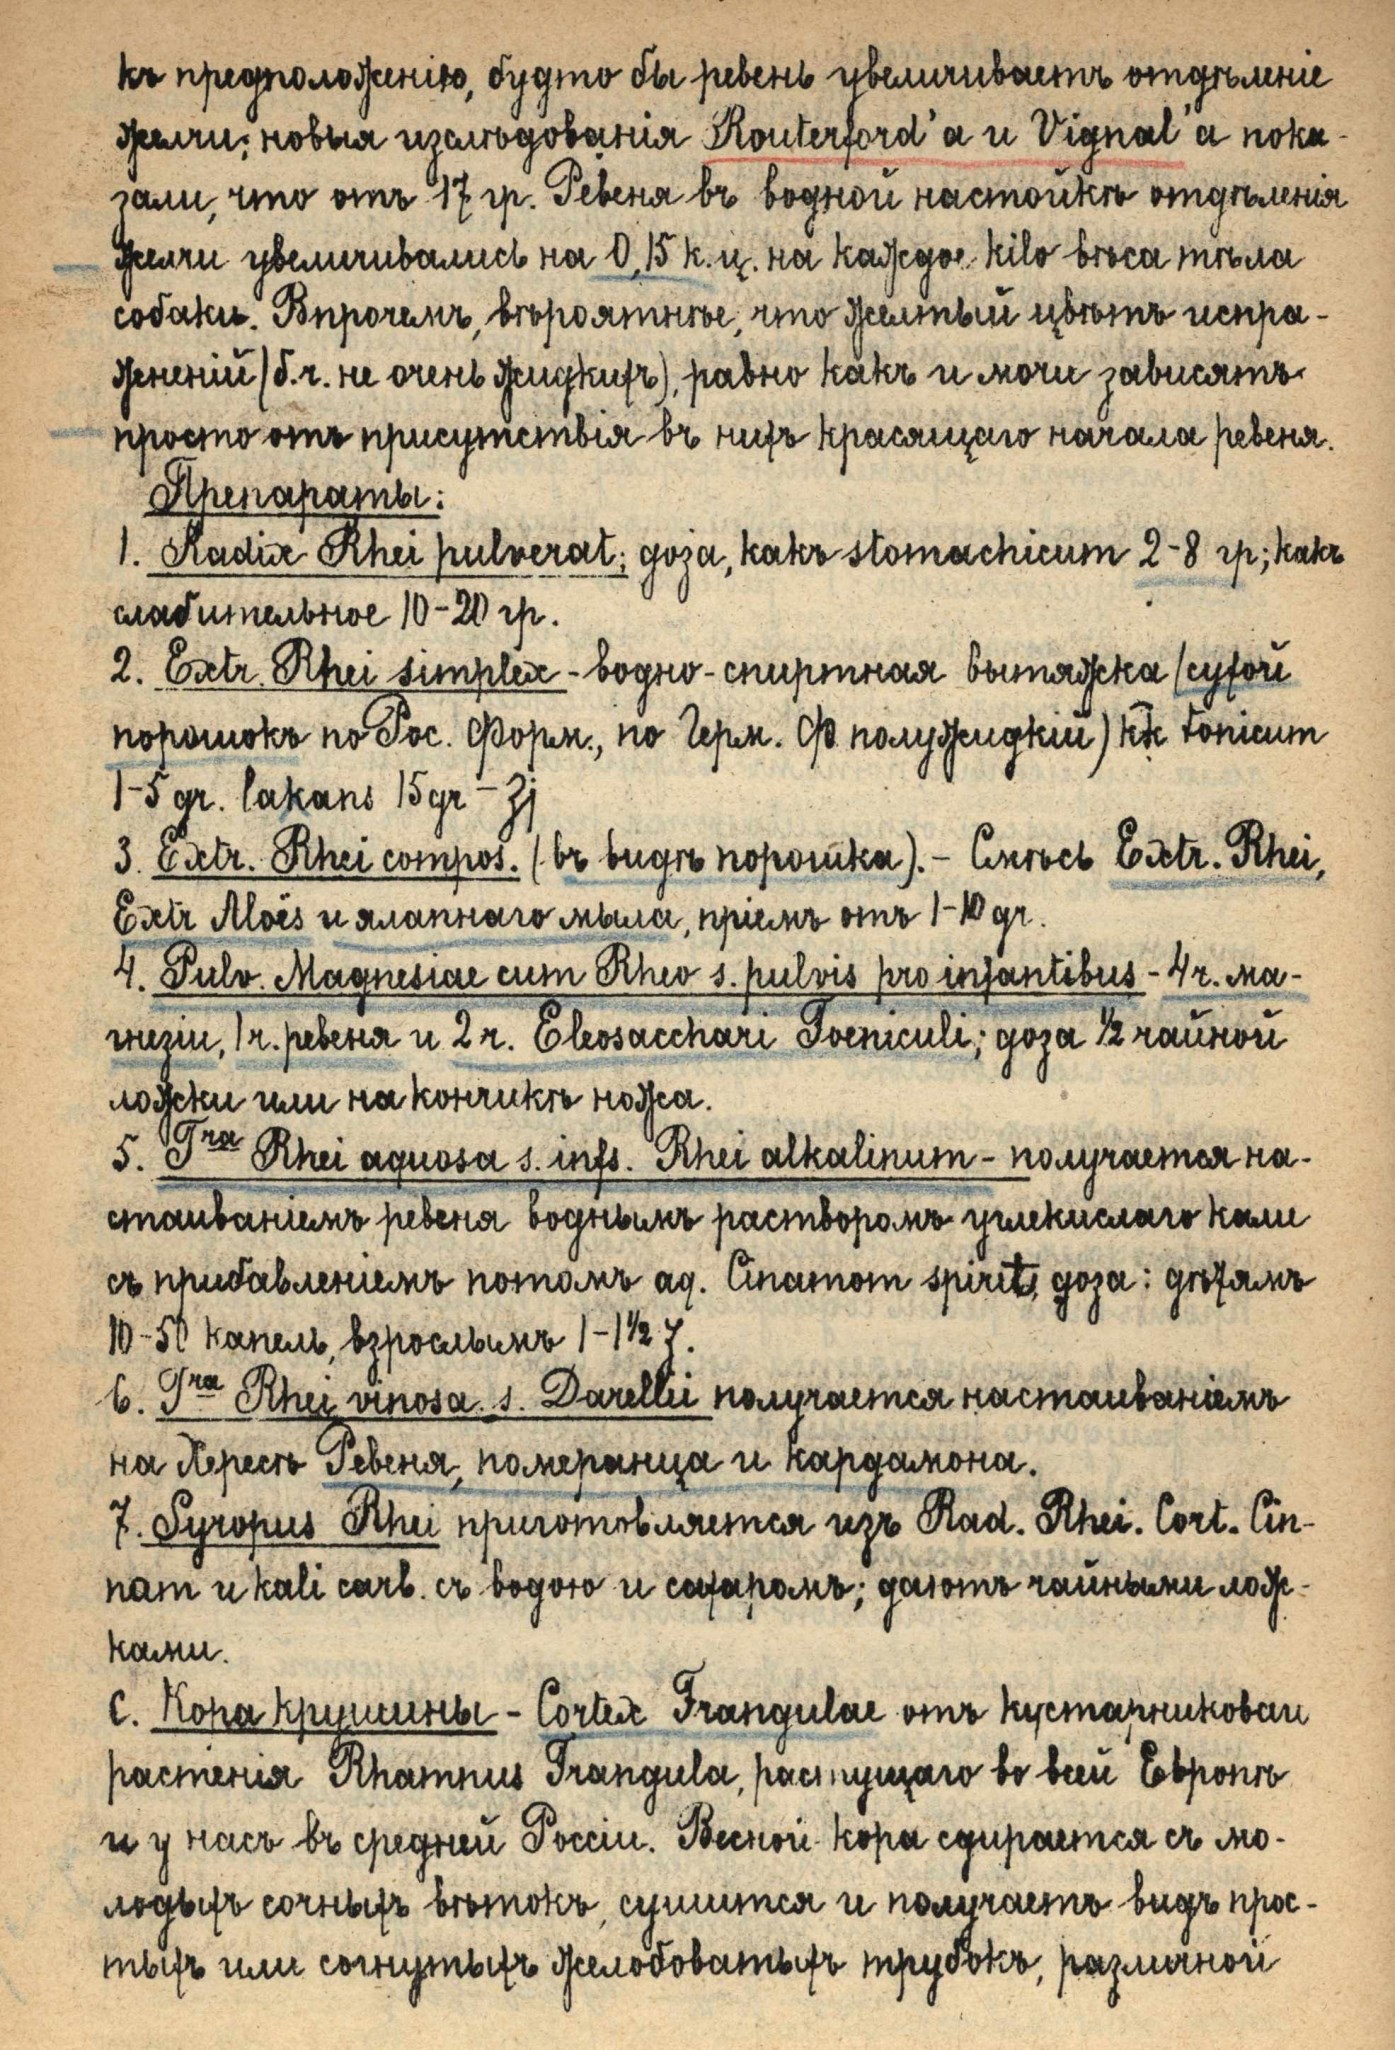 къ предположенію, будто бы ревень увеличиваетъ отдѣленіе
желчи; новыя изслѣдованія Routerford'а и Vignal'а пока-
зали, что отъ 17 гр. Ревеня въ водной настойкѣ отдѣленія
желчи увеличивались на 0,15 к.ц. на каждое kilo вѣса тѣла
собаки. Впрочемъ, вѣроятнѣе, что желтый цвѣтъ испра-
жненій (б.ч. не очень жидкихъ), равно какъ и мочи зависятъ
просто отъ присутствія въ нихъ красящаго начала ревеня.
Препараты:
1. Radix Rhei pulverat; доза, какъ stomachicum 2-8 гр; какъ
слабительное 10-20 гр.
2. Extr. Rhei simplex - водно-спиртная вытяжка (сухой
порошокъ по Рос. Форм., по Герм. Ф. полужидкій) кк tonicum
1-5 gr. laxans 15 gr - ʒj
3. Extr. Rhei compos. (въ видѣ порошка). - Смѣсь Extr. Rhei,
Extr Aloës и ялапнаго мыла, пріемъ отъ 1-10 gr.
4. Pulv. Magnesiae cum Rheo s. pulvis pro infantibus - 4 ч. ма-
гнезіи, 1 ч. ревеня и 2 ч. Eleosacchari Foeniculi; доза 1/2 чайной
ложки или на кончикѣ ножа.
5. Tra Rhei aquosa s. infs. Rhei alkalinum - получается на-
стаиваніемъ ревеня воднымъ растворомъ углекислаго кали
съ прибавленіемъ потомъ aq. Cinamom spirit, доза: дѣтямъ
10-50 капель, взрослымъ 1-1 1/2 ʒ.
6. Tra Rhei vinosa s. Darellii получается настаиваніемъ
на Хересѣ Ревеня, померанца и кардамона.
7. Syropus Rhei приготовляется изъ Rad. Rhei. Cort. Cin-
nam и kali carb. съ водою и сахаромъ; даютъ чайными лож-
ками.
C. Кора крушины - Cortex Frangulae отъ кустарниковаи
растенія Rhamnus Frangula, растущаго во всей Европѣ
и у насъ въ средней Россіи. Весной кора сдирается съ мо-
лодыхъ сочныхъ вѣтокъ, сушится и получаетъ видъ прос-
тыхъ или согнутыхъ желобоватыхъ трубокъ, различной